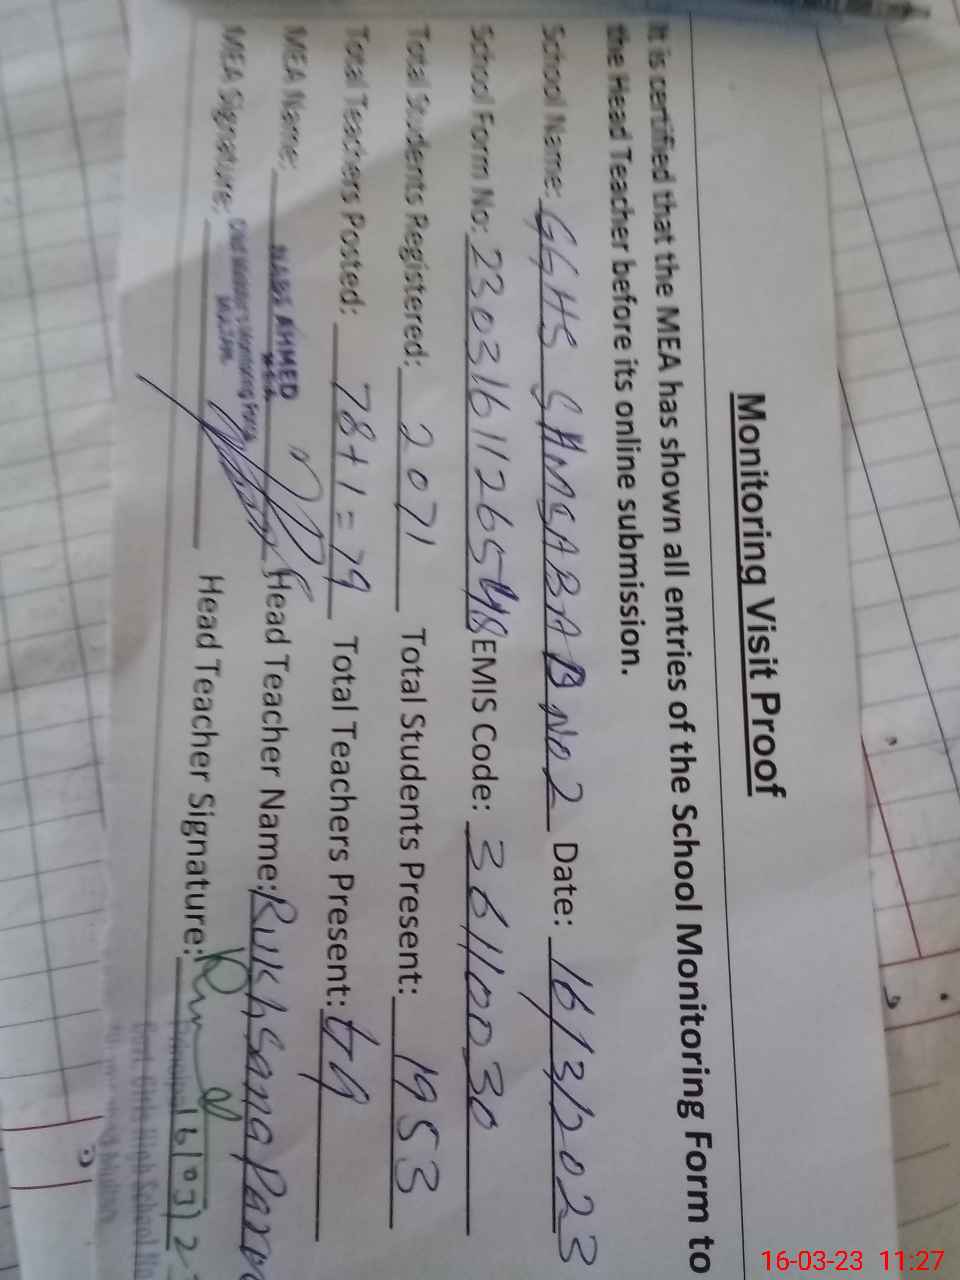 Monitoring Visit Proof
It is certified that the MEA has shown all entries of the School Monitoring Form to
the Head Teacher before its online submission.
School Name: GGHS SHMSABAD No 2 Date: 16/3/2023
School Form No: 2303161126548 EMIS Code: 36110030
Total Students Registered: 2071 Total Students Present: 1953
Total Teachers Posted: 78+1=79 Total Teachers Present: 69
MEA Name: AHMED Head Teacher Name: Rukhsana
MEA Signature: Head Teacher Signature:
Monitoring Force
MULTAN
16/03/2
Girls High School
16-03-23 11:27